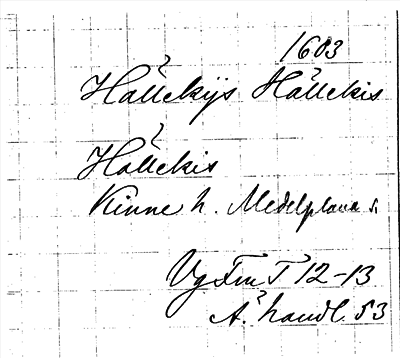 1603
Hällekijs Hällekis
Hällekis
Kinne h. Medelplana s.
Vg Fm T 12-13
A. handl. 53